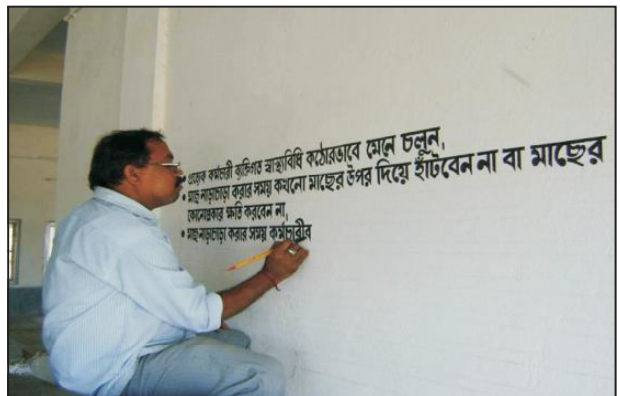 • প্রত্যেক কর্মচারী ব্যক্তিগত স্বাস্থ্যবিধি কঠোরভাবে মেনে চলুন,
• মাছ নাড়াচাড়া করার সময় কখনো মাছের উপর দিয়ে হাঁটবেন না বা মাছের
কোনোপ্রকার ক্ষতি করবেন না,
• মাছ নাড়াচাড়া করার সময় কর্মচারীব